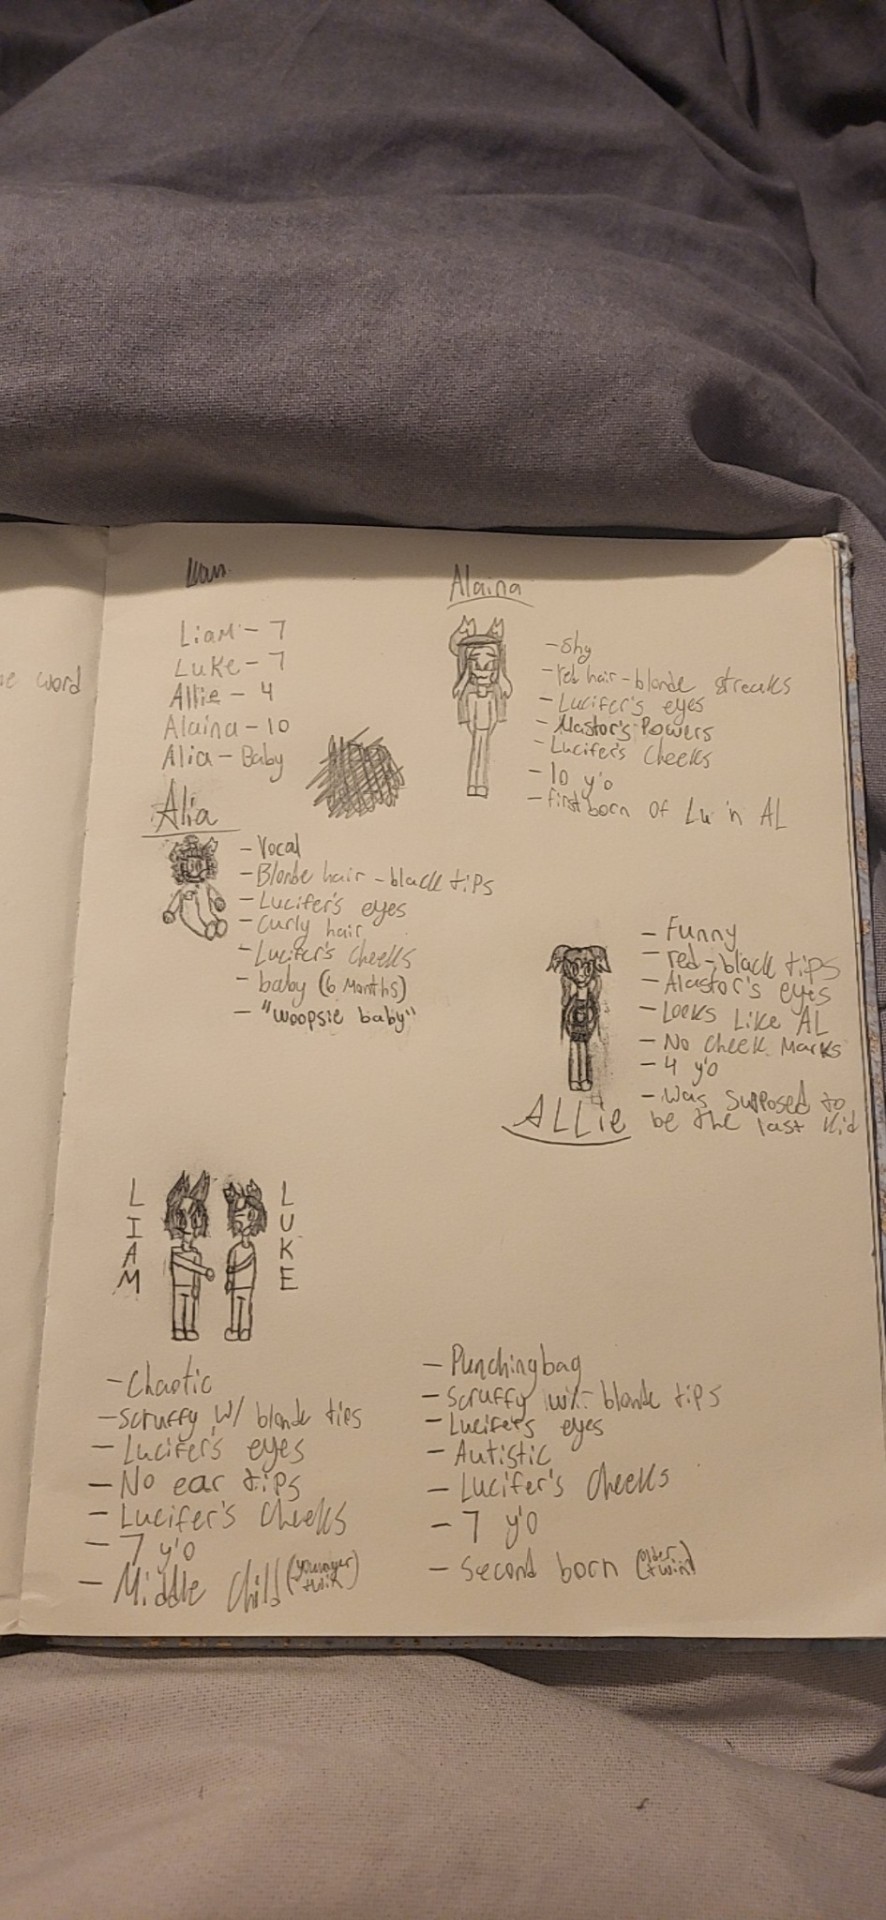 we word
Liam - 7
Luke - 7
Allie - 4
Alaina - 10
Alia - Baby
Alaina
- Shy
- red hair - blonde streaks
- Lucifer's eyes
- Alastor's Powers
- Lucifer's Cheeks
- 10 y'o
- first born of Lu 'n AL
Alia
- Vocal
- Blonde hair - black tips
- Lucifer's eyes
- Curly hair
- Lucifer's cheeks
- baby (6 Months)
- "woopsie baby"
- Funny
- red - black tips
- Alastor's eyes
- Looks Like AL
- No cheek marks
- 4 y'o
- Was supposed to
be the last kid
ALLie
LIAM
LUKE
- Chaotic
- Scruffy W/ blonde tips
- Lucifer's eyes
- No ear tips
- Lucifer's cheeks
- 7 y'o
- Middle Child (younger twin)
- Punchingbag
- Scruffy w/ - blonde tips
- Lucifer's eyes
- Autistic
- Lucifer's Cheeks
- 7 y'o
- Second born (older twin)